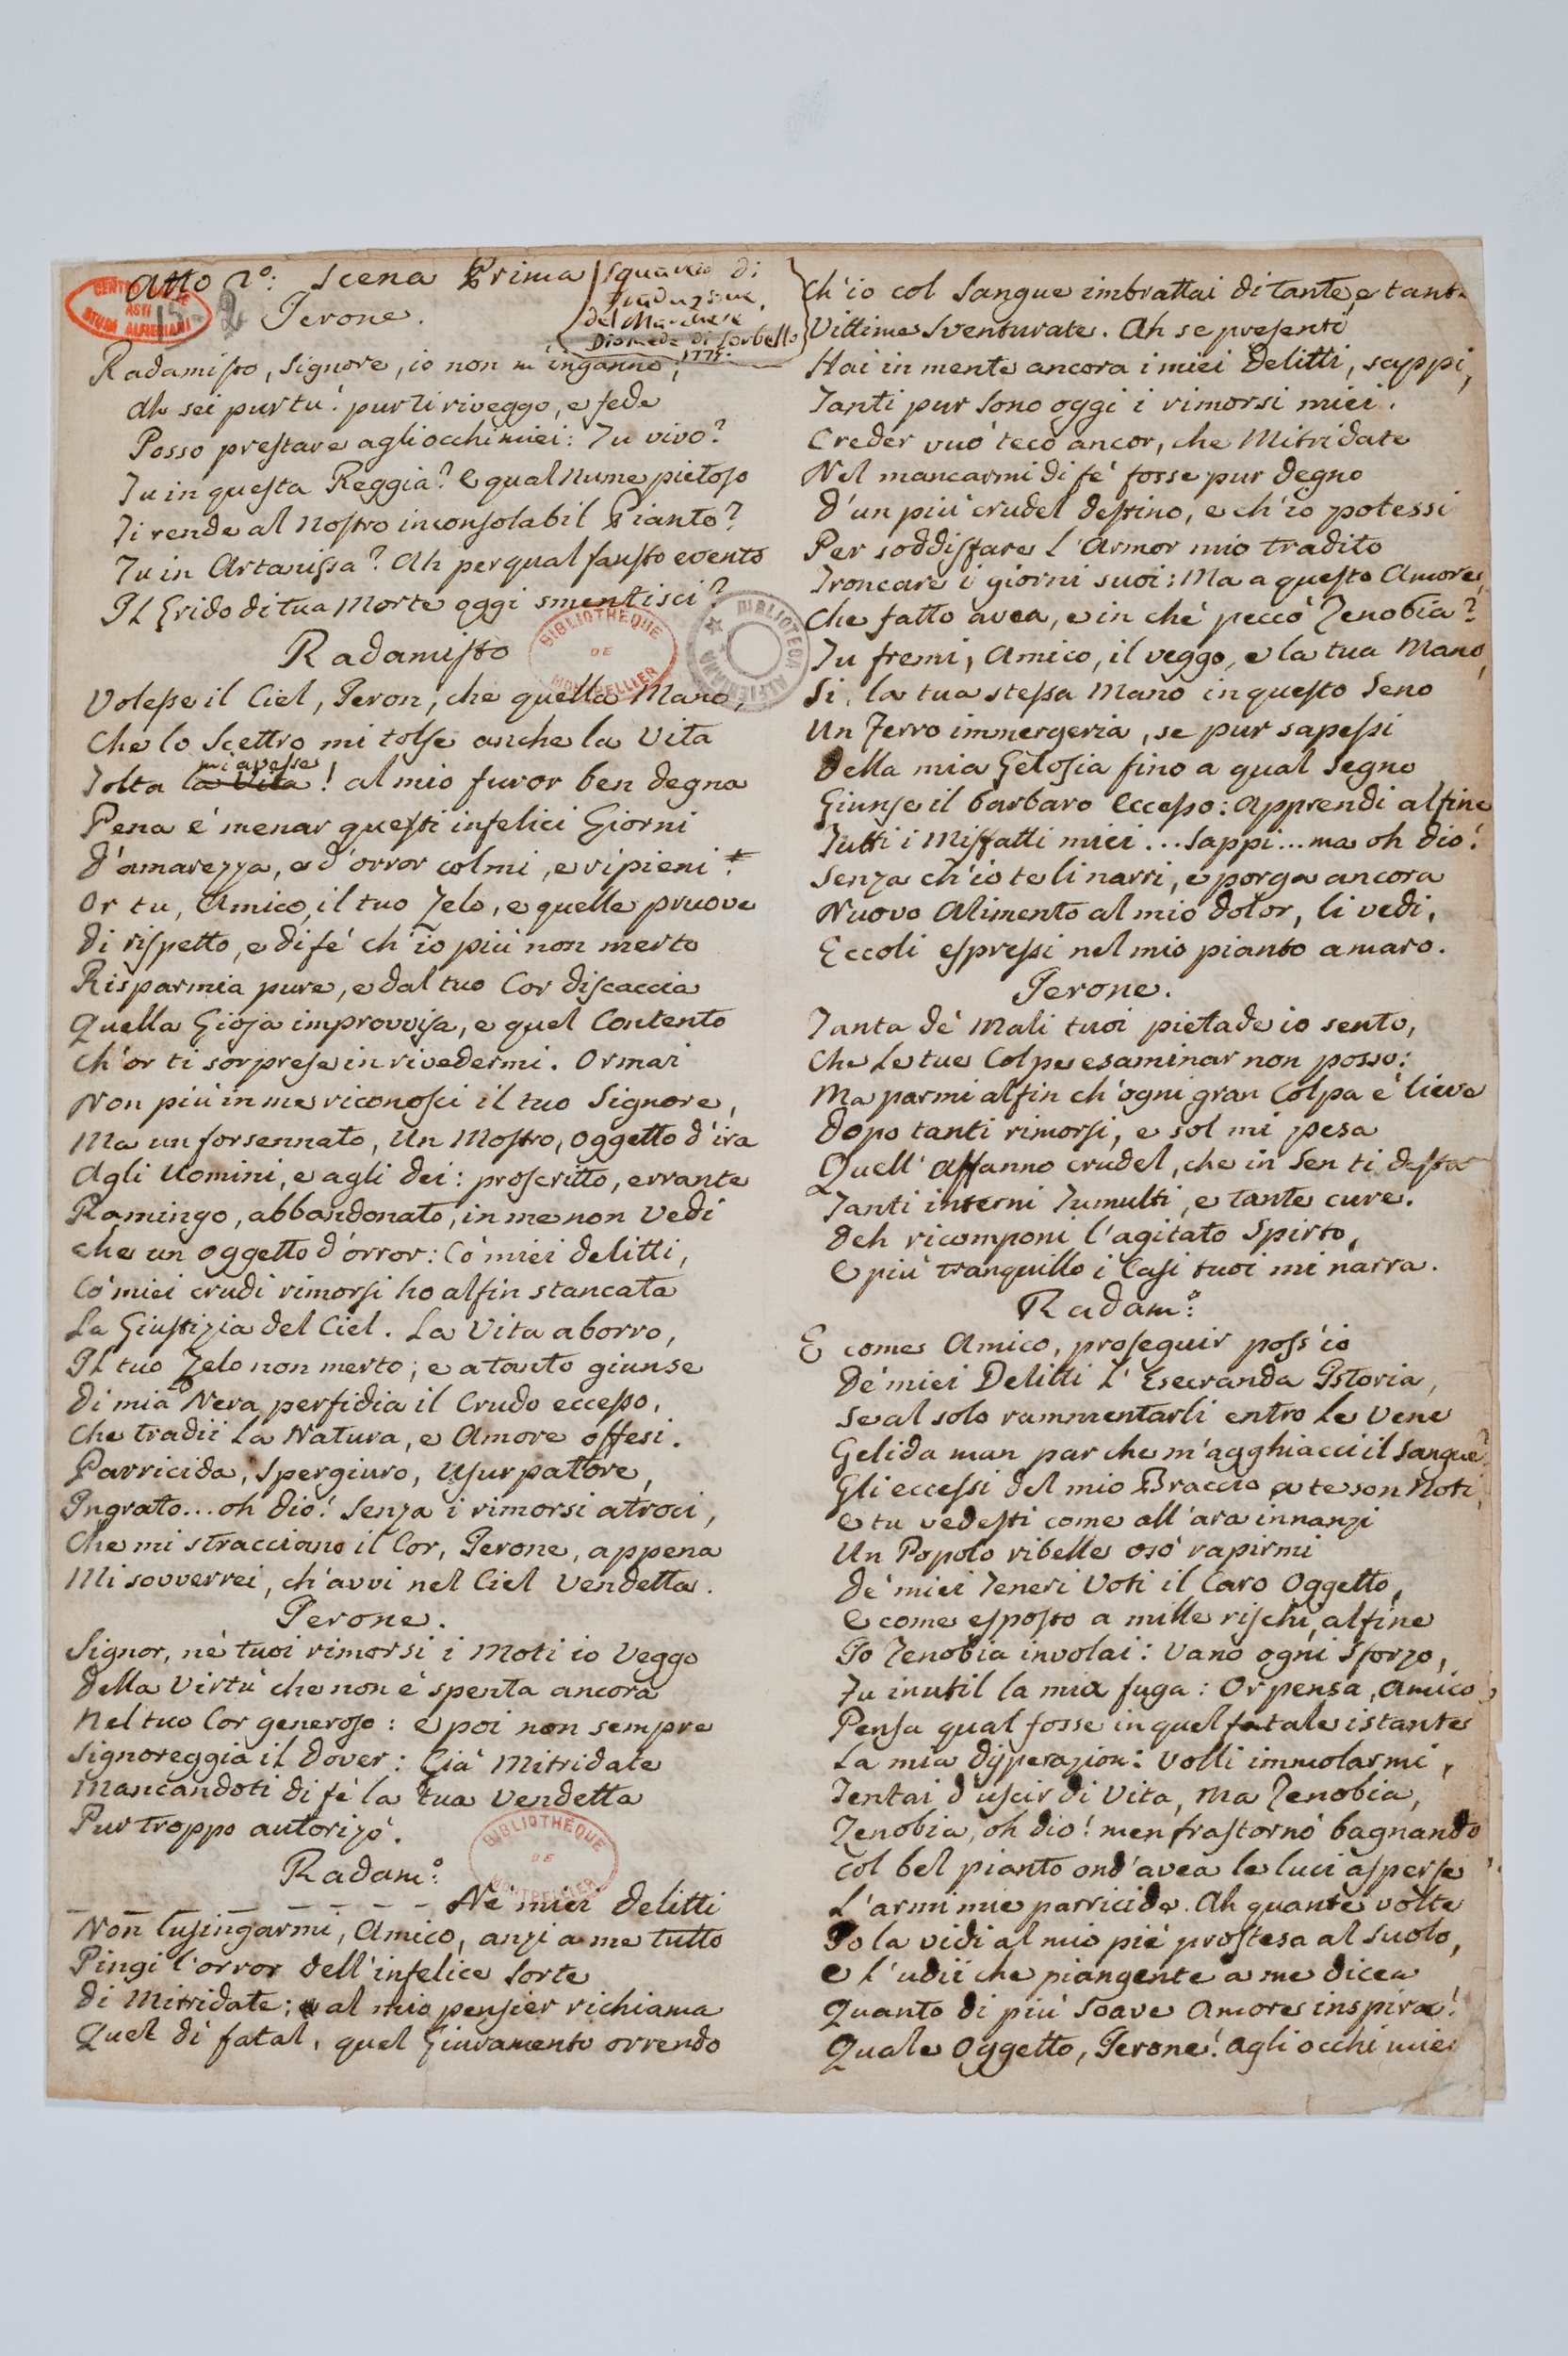 Atto 2º: Scena Prima
Squarcio di
Traduzione
del Marchese
Diomede di Sorbello
1775.
CENTRO
ASTI
STUDI ALFIERIANI
15
2
Ierone.
Radamisto, Signore, io non m'inganno;
Ah sei pur tu! pur ti riveggo, e fede
Posso prestare agli occhi miei: Tu vivo?
Tu in questa Reggia? E qual Nume pietoso
Ti rende al nostro inconsolabil Pianto?
Tu in Artanissa? Ah per qual fausto evento
Il Grido di tua Morte oggi smentisci?
BIBLIOTHEQUE DE MONTPELLIER
BIBLIOTECA ALFIERIANA
Radamisto
Volesse il Ciel, Ieron, che quella Mano,
Che lo Scettro mi tolse anche la Vita
mi avesse
Tolta la Vita! al mio furor ben degna
Pena è menar questi infelici Giorni
D'amarezza, e d'orror colmi, e ripieni.
Or tu, Amico, il tuo Zelo, e quelle pruove
Di rispetto, e di fé ch'io più non merto
Risparmia pure, e dal tuo Cor discaccia
Quella Gioja improvvisa, e quel Contento
Ch'or ti sorprese in rivedermi. Ormai
Non più in me riconosci il tuo Signore,
Ma un forsennato, Un Mostro, oggetto d'ira
Agli Uomini, e agli Dei: proscritto, errante
Ramingo, abbandonato, in me non vedi
Che un oggetto d'orror: Co' miei delitti,
Co' miei crudi rimorsi ho alfin stancata
La Giustizia del Ciel. La Vita aborro,
Il tuo Zelo non merto; e a tanto giunse
Di mia Nera perfidia il Crudo eccesso,
Che tradii la Natura, e Amore offesi.
Parricida, Spergiuro, Usurpatore,
Ingrato... oh Dio! Senza i rimorsi atroci,
Che mi stracciano il Cor, Ierone, appena
Mi sovverrei, ch'avvi nel Ciel Vendetta.
Ierone.
Signor, nè tuoi rimorsi i Moti io Veggo
Della Virtù che non è spenta ancora
Nel tuo Cor generoso: e poi non sempre
Signoreggia il Dover: Già Mitridate
Mancandoti di fè la tua Vendetta
Pur troppo autorizò.
BIBLIOTHEQUE DE MONTPELLIER
Radam:º
- - - - - - - - - Ne miei delitti
Non lusingarmi, Amico, anzi a me tutto
Pingi l'orror dell'infelice Sorte
Di Mitridate; e al mio pensier richiama
Quel dì fatal, quel Giuramento orrendo
Ch'io col Sangue imbrattai di tante, e tante
Vittime Sventurate. Ah se presenti
Hai in mente ancora i miei Delitti, sappi,
Tanti pur sono oggi i rimorsi miei.
Creder vuò teco ancor, che Mitridate
Nel mancarmi di fè fosse pur degno
D'un più crudel destino, e ch'io potessi
Per soddisfare l'Armor mio tradito
Troncare i giorni suoi: Ma a questo Amore,
Che fatto avea, e in chè peccò Zenobia?
Tu fremi, Amico, il veggo, e la tua Mano,
Si, la tua stessa Mano in questo Seno
Un Ferro immergeria, se pur sapessi
Della mia Gelosia fino a qual Segno
Giunse il barbaro eccesso: apprendi alfine
Tutti i Misfatti miei... Sappi... ma oh Dio!
Senza ch'io te li narri, e porga ancora
Nuovo Alimento al mio dolor, li vedi,
Eccoli espressi nel mio pianto amaro.
Ierone.
Tanta dè Mali tuoi pietade io sento,
Che le tue Colpe esaminar non posso:
Ma parmi alfin ch'ogni gran Colpa è lieve
Dopo tanti rimorsi, e sol mi pesa
Quell'affanno crudel, che in Sen ti desta
Tanti interni Tumulti, e tante cure.
Deh ricomponi l'agitato Spirto,
E più tranquillo i Casi tuoi mi narra.
Radam:º
E come Amico, proseguir poss'io
Dè miei Delitti l'Esecranda Istoria,
Se al solo rammentarli entro le Vene
Gelida man par che m'agghiacci il Sangue?
Gli eccessi del mio Braccio a te son Noti,
E tu vedesti come all'ara innanzi
Un Popolo ribelle osò rapirmi
Dè miei Teneri Voti il Caro Oggetto,
E come esposto a mille rischi, alfine
Io Zenobia involai: Vano ogni Sforzo,
Fu inutil la mia fuga: Or pensa, Amico,
Pensa qual fosse in quel fatale istante
La mia disperazion: Volli immolarmi,
Tentai d'uscir di Vita, Ma Zenobia,
Zenobia, oh Dio! men frastornò bagnando
Col bel pianto ond'avea le luci asperse
L'armi mie parricide. Ah quante volte
Io la vidi al mio piè prostesa al Suolo,
E l'udii che piangente a me dicea
Quanto di più Soave Amore inspira!
Quale Oggetto, Ierone! agli occhi miei